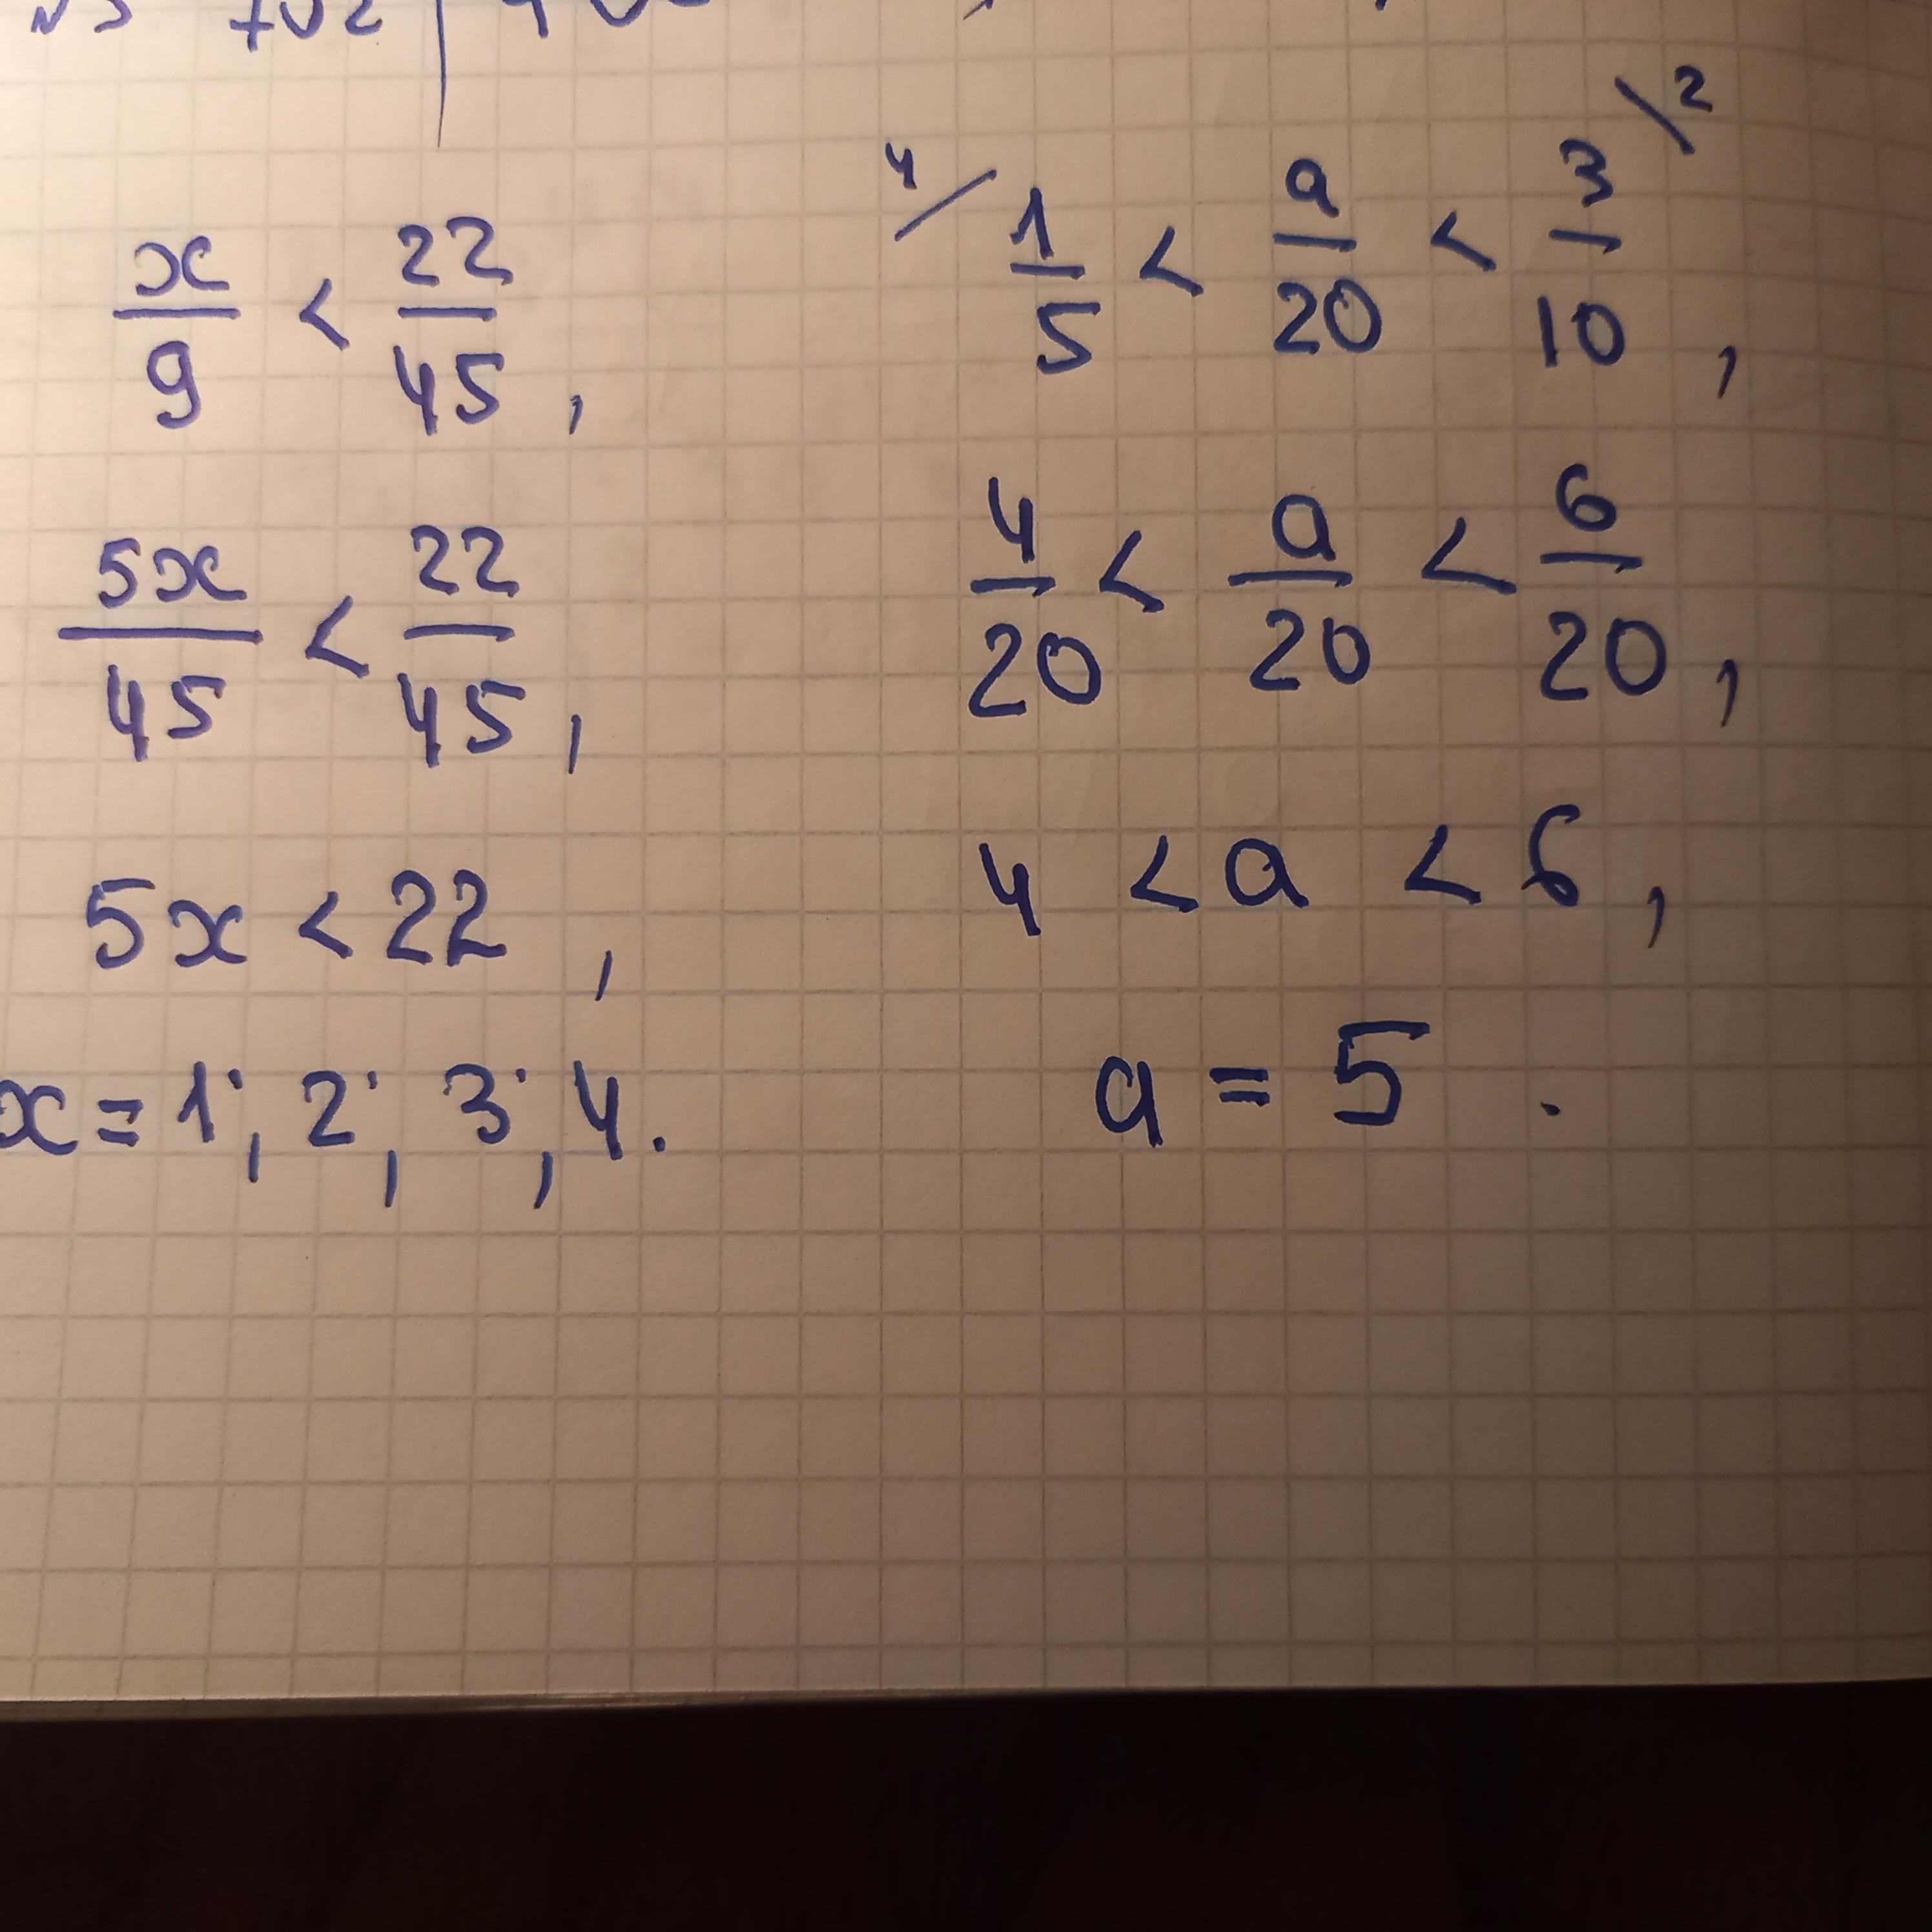 x/9 < 22/45,
5x/45 < 22/45,
5x < 22,
x = 1; 2; 3; 4.
4/ 1/5 < a/20 < 3/10 \2,
4/20 < a/20 < 6/20,
4 < a < 6,
a = 5.